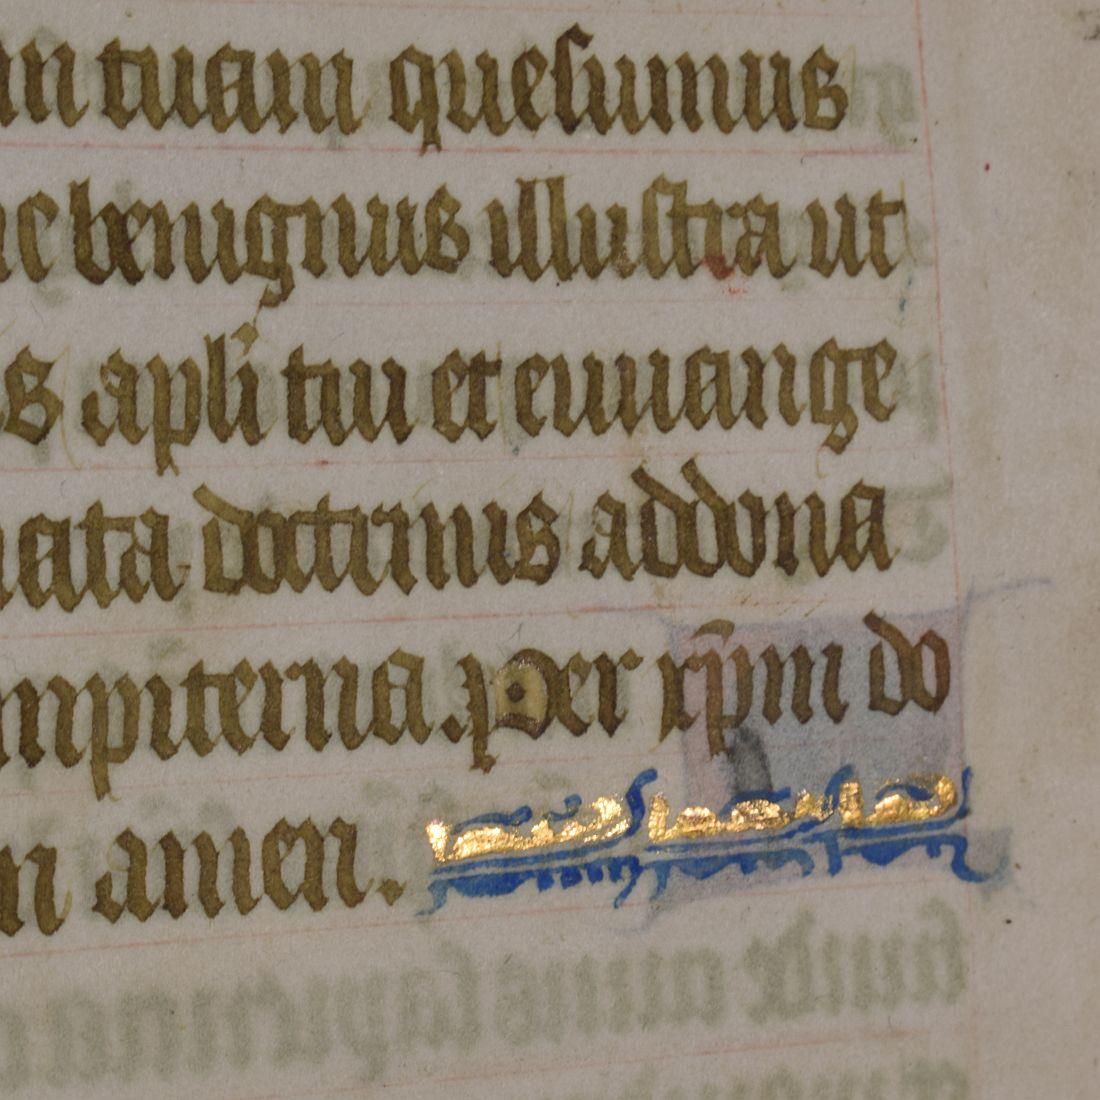 tuam quesumus
benignus illustra ut
apli tui et euuange
doctrinis ad dona
mpiterna. Per xpm do
amen.